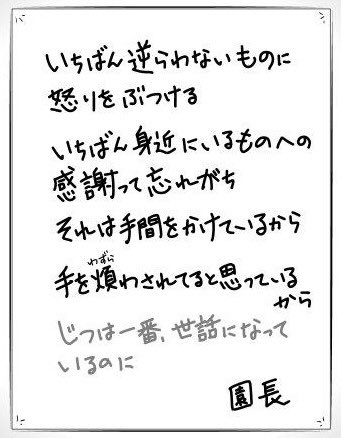 いちばん逆らわないものに
怒りをぶつける
いちばん身近にいるものへの
感謝って忘れがち
それは手間をかけているから
わずら
手を煩わされてると思っている
から
じつは一番、世話になって
いるのに
園長